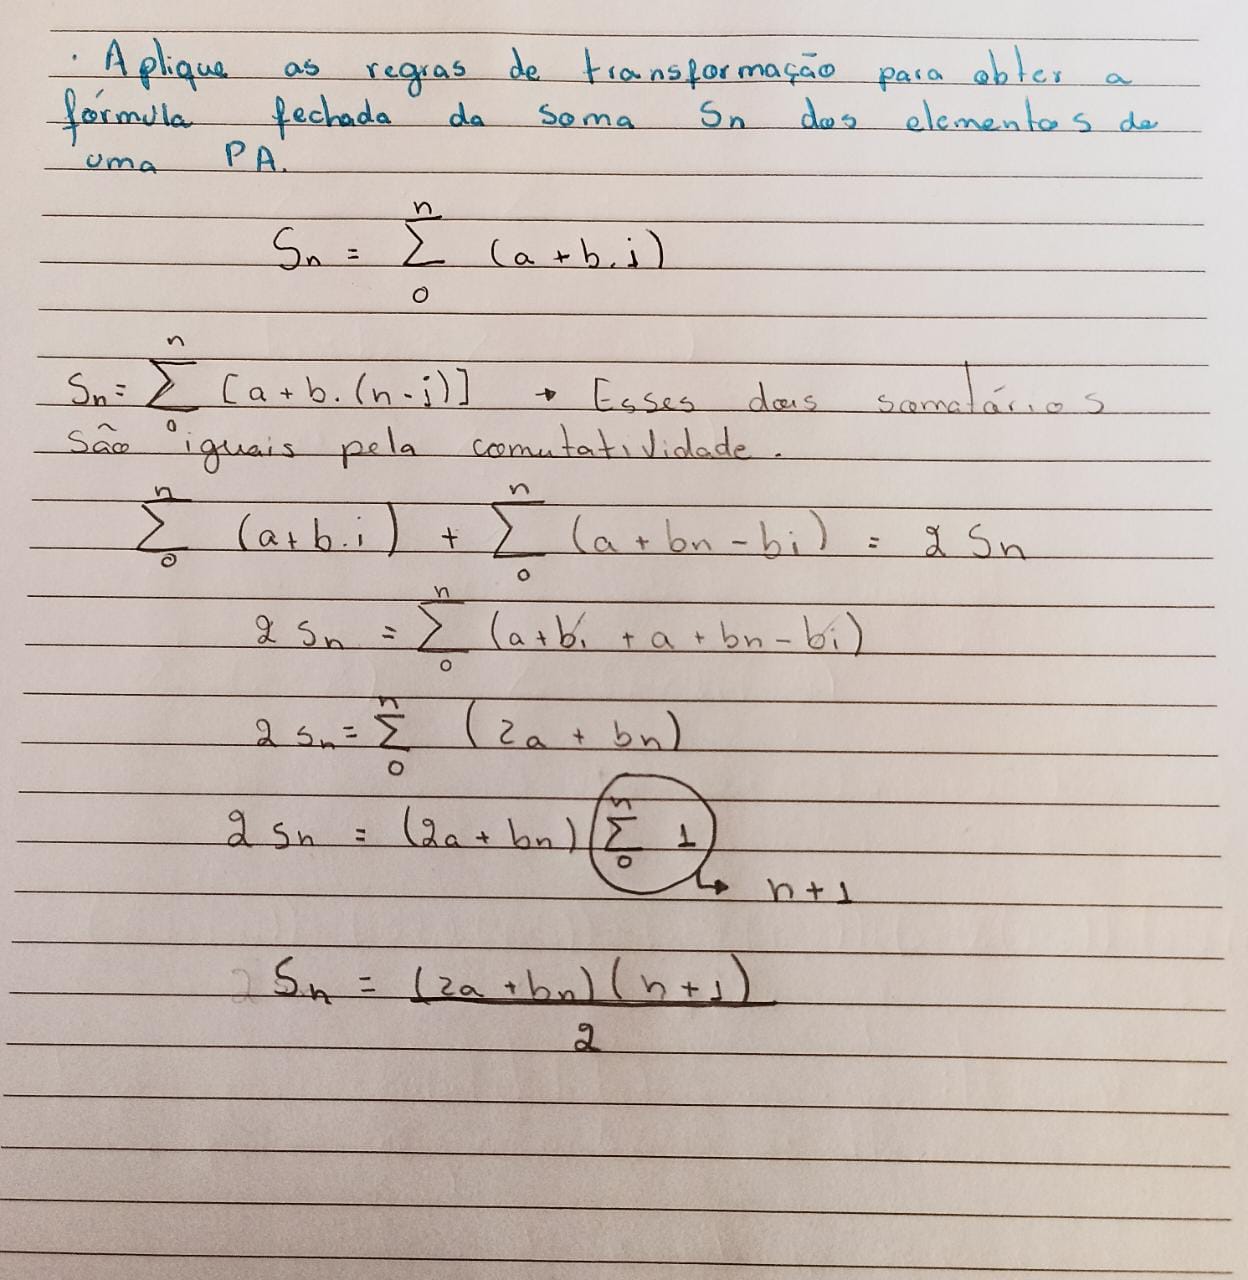 · Aplique as regras de transformação para obter a
fórmula fechada da soma Sn dos elementos de
uma PA.
n
Sn = Σ (a + b.i)
0
n
Sn = Σ [a + b.(n-i)] → Esses dois somatórios
0
são iguais pela comutatividade.
n n
Σ (a + b.i) + Σ (a + bn - bi) = 2 Sn
0 0
n
2 Sn = Σ (a + bi + a + bn - bi)
0
n
2 Sn = Σ (2a + bn)
0
n
2 Sn = (2a + bn) Σ 1
0
↳ n+1
Sn = (2a + bn)(n+1)
2